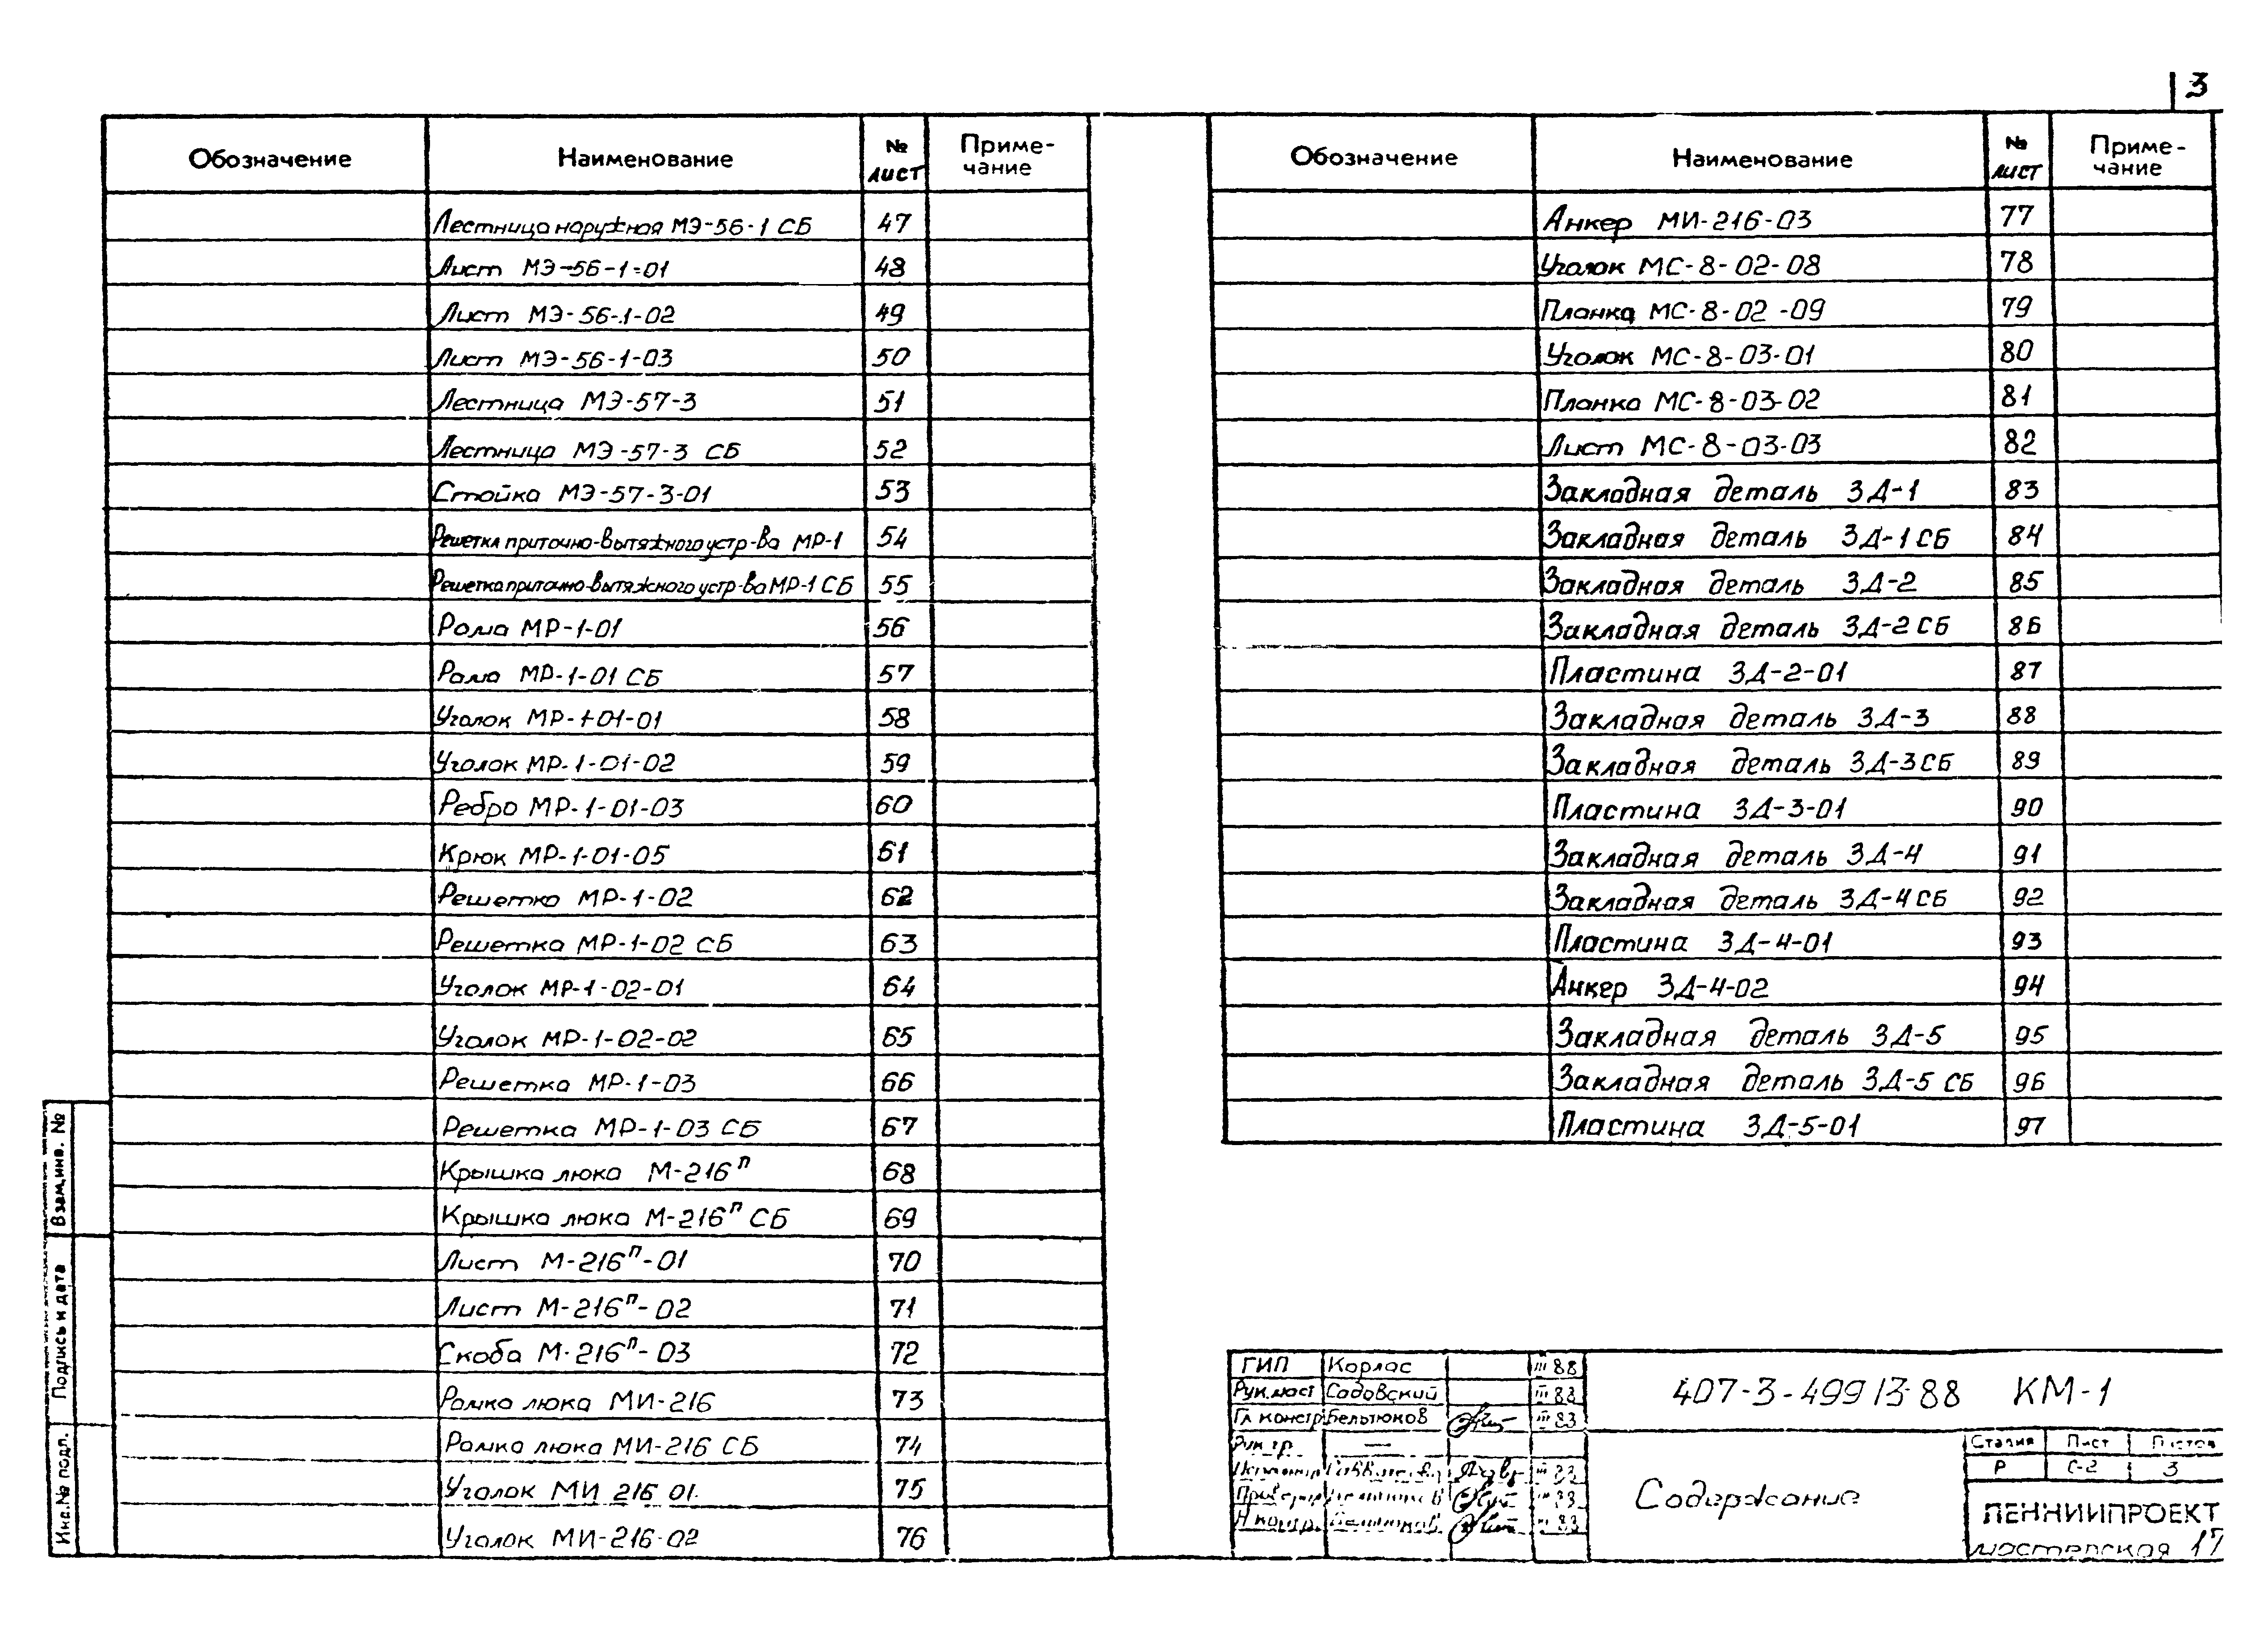 3
Обозначение Наименование № лист Приме-чание
Лестница наружная МЭ-56-1 СБ 47
Лист МЭ-56-1-01 48
Лист МЭ-56-1-02 49
Лист МЭ-56-1-03 50
Лестница МЭ-57-3 51
Лестница МЭ-57-3 СБ 52
Стойка МЭ-57-3-01 53
Решетка приточно-вытяжного устр-ва МР-1 54
Решетка приточно-вытяжного устр-ва МР-1 СБ 55
Рама МР-1-01 56
Рама МР-1-01 СБ 57
Уголок МР-1-01-01 58
Уголок МР-1-01-02 59
Ребро МР-1-01-03 60
Крюк МР-1-01-05 61
Решетка МР-1-02 62
Решетка МР-1-02 СБ 63
Уголок МР-1-02-01 64
Уголок МР-1-02-02 65
Решетка МР-1-03 66
Решетка МР-1-03 СБ 67
Крышка люка М-216ᴨ 68
Крышка люка М-216ᴨ СБ 69
Лист М-216ᴨ-01 70
Лист М-216ᴨ-02 71
Скоба М-216ᴨ-03 72
Рамка люка МИ-216 73
Рамка люка МИ-216 СБ 74
Уголок МИ 216 01 75
Уголок МИ-216-02 76
Обозначение Наименование № лист Приме-чание
Анкер МИ-216-03 77
Уголок МС-8-02-08 78
Планка МС-8-02-09 79
Уголок МС-8-03-01 80
Планка МС-8-03-02 81
Лист МС-8-03-03 82
Закладная деталь ЗД-1 83
Закладная деталь ЗД-1 СБ 84
Закладная деталь ЗД-2 85
Закладная деталь ЗД-2 СБ 86
Пластина ЗД-2-01 87
Закладная деталь ЗД-3 88
Закладная деталь ЗД-3 СБ 89
Пластина ЗД-3-01 90
Закладная деталь ЗД-4 91
Закладная деталь ЗД-4 СБ 92
Пластина ЗД-4-01 93
Анкер ЗД-4-02 94
Закладная деталь ЗД-5 95
Закладная деталь ЗД-5 СБ 96
Пластина ЗД-5-01 97
Взам.инв. №
Подпись и дата
Инв.№ подл.
ГИП Корлас III 88
Рук.маст Садовский III 88
Гл констр Бельтюков III 83
Рук гр. —
Н контр. Бельтюков III 83
407-3-499 13-88 КМ-1
Содержание
Стадия Лист Листов
Р С-2 3
ЛЕННИИПРОЕКТ
мастерская 17